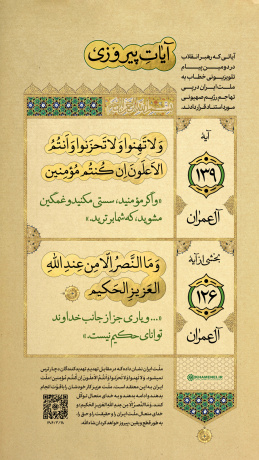 آیاتِ پیروزی
آیاتی که رهبر انقلاب
در دومین پیام
تلویزیونی خطاب به
ملت ایران در پی
تهاجم رژیم صهیونی
مورد استناد قرار دادند.
آیه
۱۳۹
آل‌عمران
وَلا تَهِنوا وَلا تَحزَنوا وَاَنتُمُ
الاَعلَونَ اِن کُنتُم مُؤمِنین
«و اگر مؤمنید، سستی مکنید و غمگین
مشوید، که شما برترید.»
بخشی از آیه
۱۲۶
آل‌عمران
وَمَا النَّصرُ اِلّا مِن عِندِ اللهِ
العَزیزِ الحَکیم
«... و یاری جز از جانب خداوند
توانای حکیم نیست.»
ملت ایران نشان داده که در مقابل تهدیدِ تهدیدکنندگان، دچار ترس
نمیشود. وَلا تَهِنوا وَلا تَحزَنوا وَاَنتُمُ الاَعلَونَ اِن کُنتُم مُؤمِنین. ملت